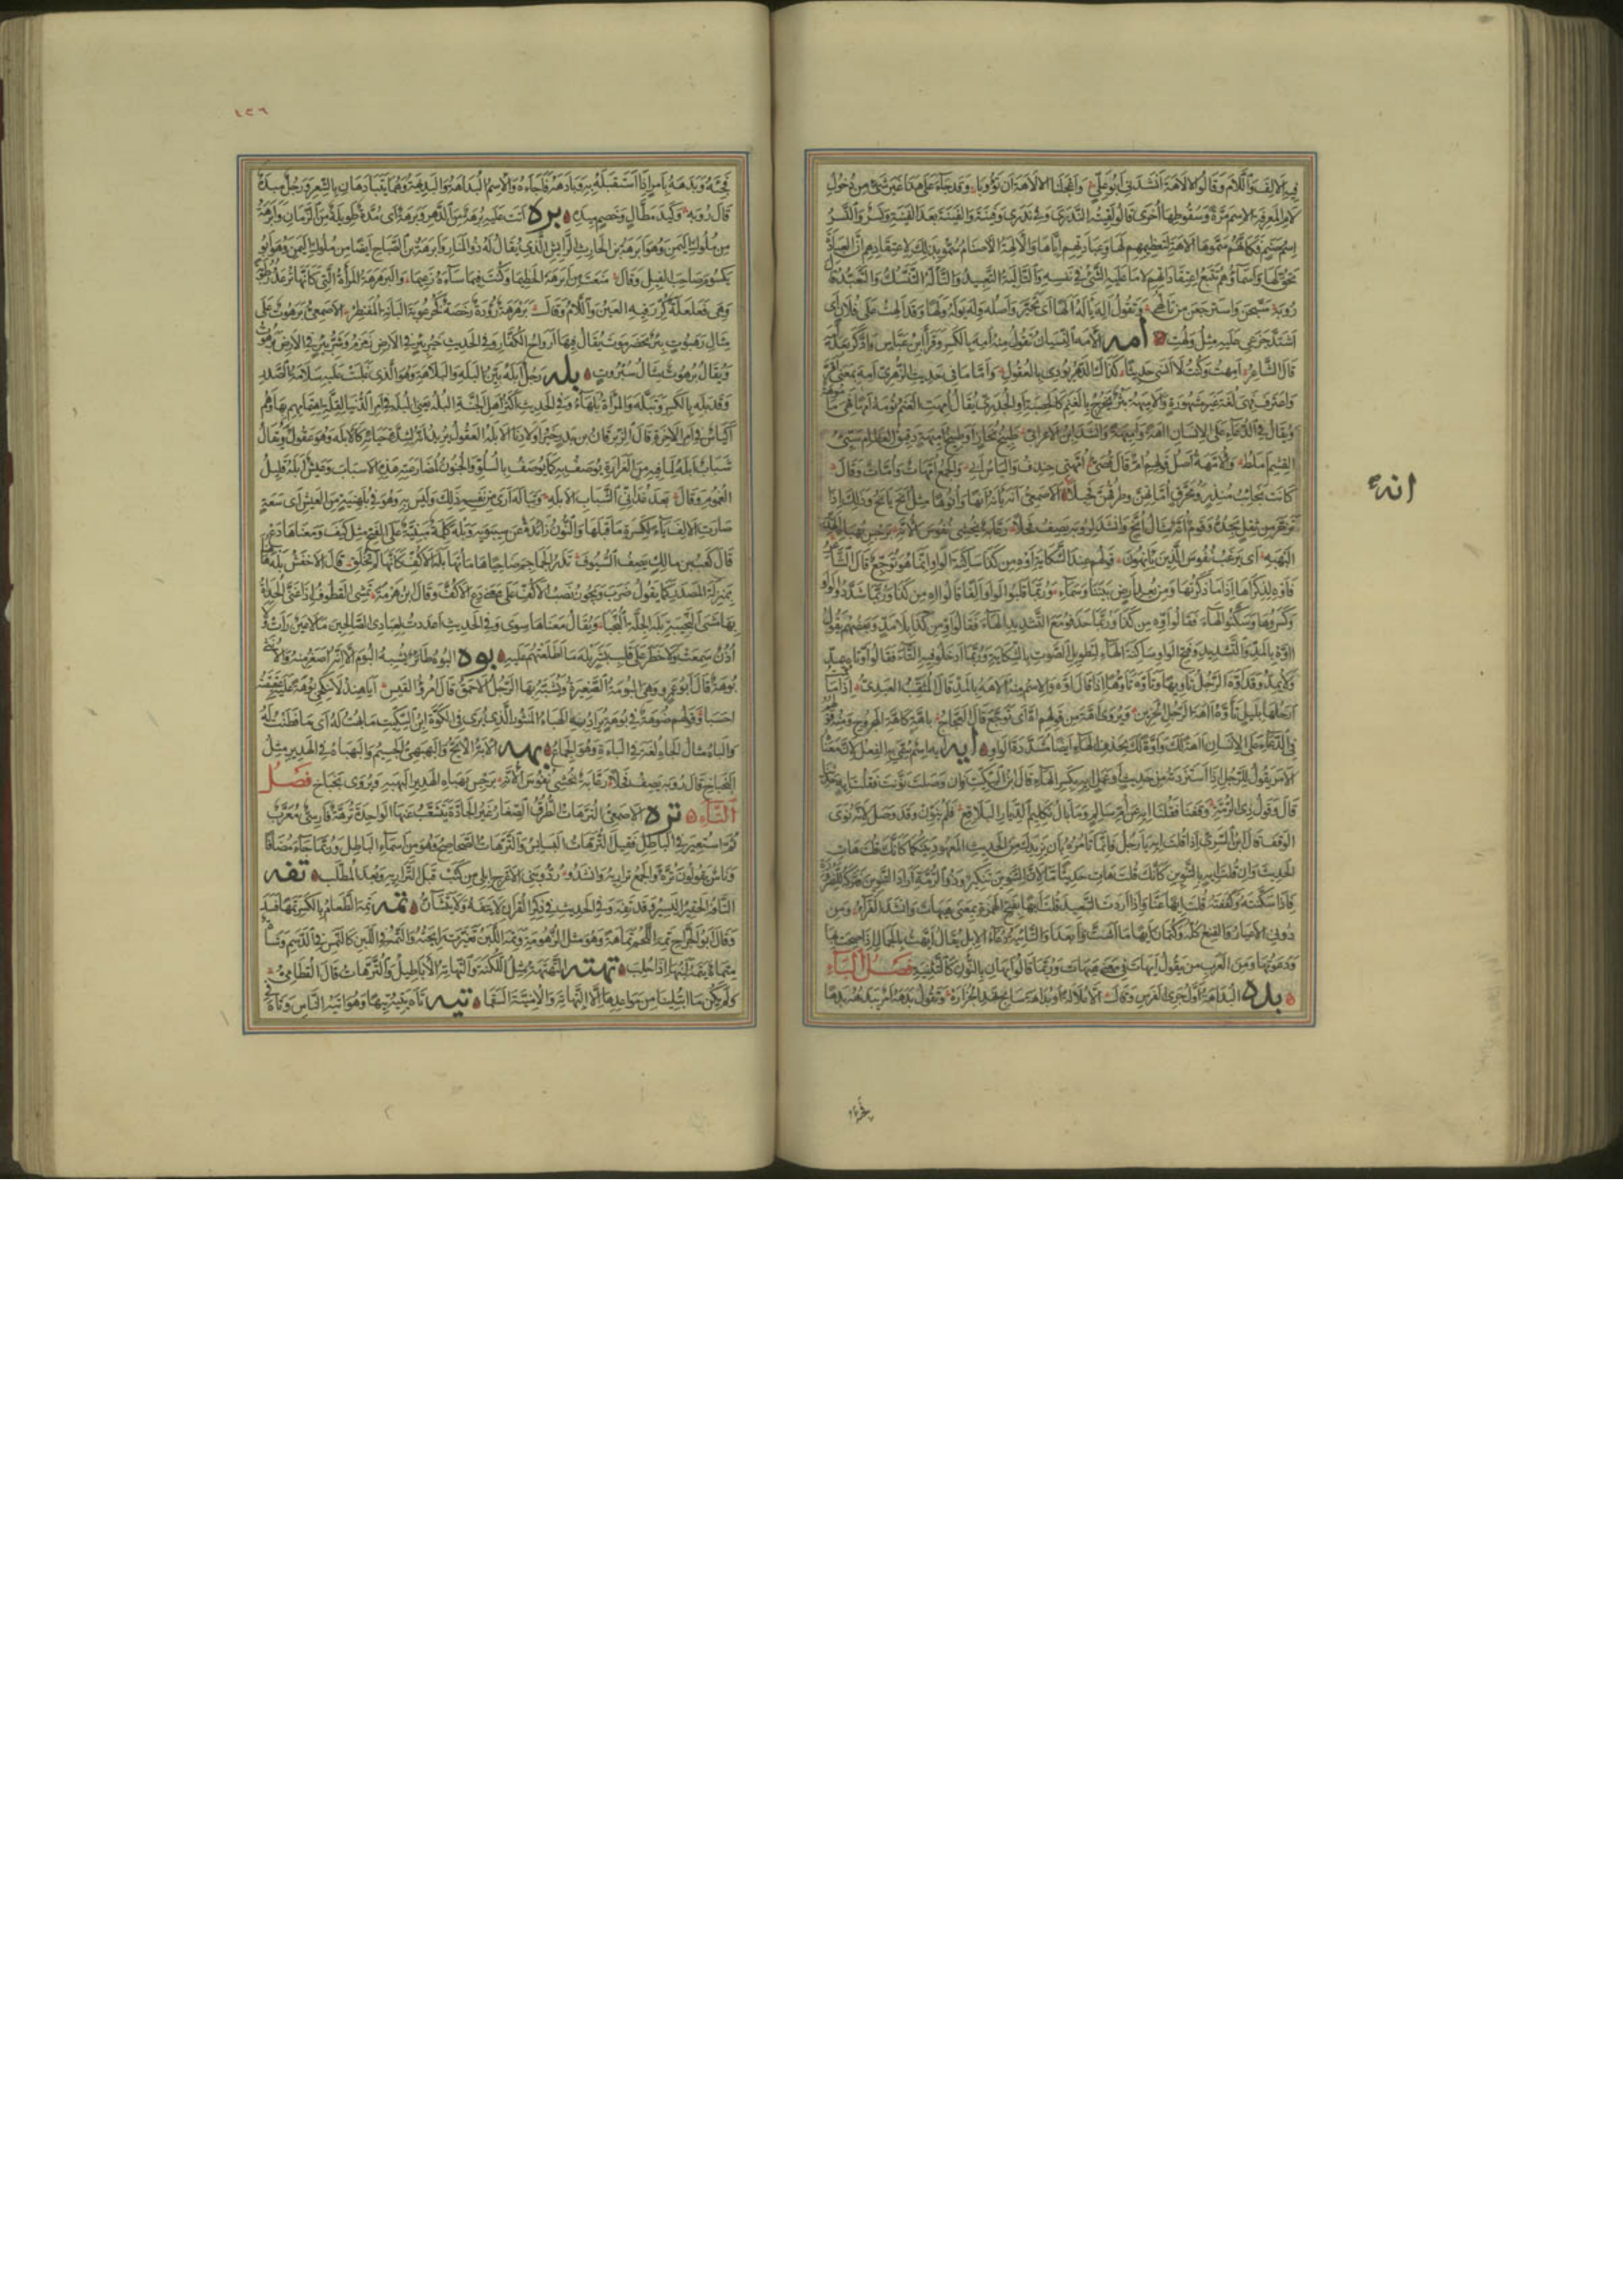 فيه الالف واللام وقالوا الالاهة انشدني ابو علي واعجلنا الالاهة ان تؤوبا وقد جاء على هذا غير شئ من دخول
لام المعرفة الاسم مرة وسقوطها اخرى قالوا لقيته الندرى وفي ندرى وفينة والفينة بعد الفينة ونسر والنسر
اسم صنم فكانهم سموها الاهة لتعظيمهم لها وعبادتهم اياها والآلهة الاصنام سموا بذلك لاعتقادهم ان العبادة
تحق لها واسماؤهم تتبع اعتقاداتهم لا ما عليه الشئ في نفسه والتاليه التعبيد والتاله التنسك والتعبد قال
رؤبة سبحن واسترجعن من تالهي وتقول اله ياله الها اى تحير واصله وله يوله ولها وقد الهت على فلان اى
اشتد جزعي عليه مثل ولهت امه الامه النسيان تقول منه امه بالكسر وقرا ابن عباس وادكر بعد امه
قال الشاعر امهت وكنت لا انسى حديثا كذاك الدهر يودي بالعقول واما ما في حديث الزهري امه بمعنى اقر
واعترف فهي لغة غير مشهورة والاميهة بثر يخرج بالغنم كالحصبة او الجدري يقال امهت الغنم
ويقال في الدعاء على الانسان اهة واميهة وانشد ابن الاعرابي طبيخ نحاز او طبيخ اميهة دقيق العظام سيئ
القشم املط والامهة اصل قولهم ام قال قصي امهتي خندف والياس ابي والجمع امهات وامات وقال
كانت نجائب منذر ومحرق اماتهن وطرقهن فحيلا الاصمعي انه يانه انها وانوها مثل انح يانح وذلك اذا
تزحر من ثقل يجده وقوم انه مثال انح وانشد لرؤبة يصف فحلا رعابة يخشي نفوس الانه برجس بهباه الهدير
البهبه اى يرعب نفوس الذين يانهون قولهم عند الشكاية اوه من كذا ساكنة الواو انما هو توجع قال الشاعر
فاوه لذكراها اذا ما ذكرتها ومن بعد ارض بيننا وسماء وربما قلبوا الواو الفا فقالوا آه من كذا وربما شددوا الواو
وكسروها وسكنوا الهاء فقالوا اوه من كذا وربما حذفوا مع التشديد الهاء فقالوا او من كذا بلا مد وبعضهم يقول
آوه بالمد والتشديد وفتح الواو ساكنة الهاء لتطويل الصوت بالشكاية وربما ادخلوا فيه التاء فقالوا اوتاه يمد
ولا يمد وقد اوه الرجل تاويها وتاوه تاوها اذا قال اوه والاسم منه الآهة بالمد قال المثقب العبدي اذا ما قمت
ارحلها بليل تاوه آهة الرجل الحزين ويروى اهة من قولهم اه اى توجع قال العجاج باهة كاهة المجروح
في الدعاء على الانسان آهة لك واوة لك بحذف الهاء ايضا مشددة الواو ايه ايه اسم سمي به الفعل لان معناه
الامر تقول للرجل اذا استزدته من حديث او عمل ايه بكسر الهاء قال ابن السكيت فان وصلت نونت فقلت ايه حدثنا
قال وقول ذي الرمة وقفنا فقلنا ايه عن ام سالم وما بال تكليم الديار البلاقع فلم ينون وقد وصل لانه نوى
الوقف قال ابن السري اذا قلت ايه يا رجل فانما تامره بان يزيدك من الحديث المعهود بينكما كانك قلت هات
الحديث وان قلت ايه بالتنوين كانك قلت هات حديثا ما لان التنوين تنكير وذو الرمة اراد التنوين فتركه للضرورة
فاذا سكته وكففته قلت ايها عنا واذا اردت التبعيد قلت ايها بفتح الهمزة بمعنى هيهات وانشد الفراء ومن
دوني الاعيار والقنع كله وكتمان ايها ما اشت وابعدا والتاييه دعاء الابل يقال ايهت بالجمال اذا صحت بها
ودعوتها ومن العرب من يقول ايهات في معنى هيهات وربما قالوا ايهان بالنون كالتثنية فصل الباء
بده البداهة اول جرى الفرس وتقول بدهه امر يبدهه بدها
انه
فجئه وبدهه بامر اذا استقبله به وبادهه فاجاءه والاسم البداهة والبديهة وهما يتبادهان بالشعر ورجل مبده
قال رؤبة وكيد مطال وخصم مبده بره اتت عليه برهة من الدهر وبرهة اى مدة طويلة من الزمان وابرهة
من ملوك اليمن وهو ابرهة بن الحارث الرايش الذي يقال له ذو المنار وابرهة بن الصباح ايضا من ملوك اليمن وهو ابو
يكسوم صاحب الفيل وقال منعت من ابرهة الحطيما وكنت فيما ساءه زعيما والبرهرهة المراة التي كانها ترعد رطوبة
وهي فعلعلة كرر فيه العين واللام وقال برهرهة رودة رخصة كخرعوبة البانة المنفطر الاصمعي برهوت على
مثال رهبوت بئر بحضرموت يقال فيها ارواح الكفار وفي الحديث خير بئر في الارض زمزم وشر بئر في الارض برهوت
ويقال برهوت مثال سبروت بله رجل ابله بين البله والبلاهة وهو الذي غلبت عليه سلامة الصدر
وقد بله بالكسر وتبله والمراة بلهاء وفي الحديث اكثر اهل الجنة البله يعني البله في امر الدنيا لقلة اهتمامهم بها وهم
اكياس في امر الآخرة قال الزبرقان بن بدر خير اولادنا الابله العقول يريد انه لشدة حيائه كالابله وهو عقول ويقال
شباب ابله لما فيه من الغرارة يوصف به كما يوصف بالسلو والجنون لمضارعته هذه الاسباب وعيش ابله قليل
الغموم وقال بعد غداني الشباب الابله وتباله ارى من نفسه ذلك وليس به وهو في بلهنية من العيش اى سعة
صارت الالف ياء لكسرة ما قبلها والنون زائدة عن سيبويه وبله كلمة مبنية على الفتح مثل كيف ومعناها دع
قال كعب بن مالك يصف السيوف تذر الجماجم ضاحيا هاماتها بله الاكف كانها لم تخلق قال الاخفش بله هاهنا
بمنزلة المصدر كما تقول ضرب زيد ويجوز نصب الاكف على معنى دع الاكف وقال ابن هرمة تمشي القطوف اذا غنى الحداة
بها مشى النجيبة بله الجلة النجبا ويقال معناها سوى وفي الحديث اعددت لعبادي الصالحين ما لا عين رات ولا
اذن سمعت ولا خطر على قلب بشر بله ما اطلعتهم عليه بوه البوه طائر يشبه البوم الا انه اصغر منه والانثى
بوهة قال ابو عمرو وهي البومة الصغيرة ويشبه بها الرجل الاحمق قال امرؤ القيس ايا هند لا تنكحي بوهة عليه عقيقته
احسبا وقولهم صوفة في بوهة يراد بها الهباء المنثور الذي يرى في الكوة ابن السكيت ما بهت له اى ما فطنت له
والباه مثال الجاه لغة في الباءة وهو الجماع بهه الابه الابح والبهبهي الجسيم والبهباه في الهدير مثل
البخباخ قال رؤبة يصف فحلا رعابة يخشي نفوس الانه برجس بهباه الهدير البهبه ويروى بخباخ فصل
التاء تره الاصمعي الترهات الطرق الصغار غير الجادة تتشعب عنها الواحدة ترهة فارسي معرب
ثم استعير في الباطل فقيل الترهات البسابس والترهات الصحاصح وهو من اسماء الباطل وربما جاء مضافا
وناس يقولون تره والجمع تراريه وانشدوا ردوا بني الاعرج ابلي من كثب قبل التراريه وبعد المطلب تفه
التافه الحقير اليسير وقد تفه وفي الحديث في ذكر القرآن لا يتفه ولا يتشان تمه تمه الطعام بالكسر تمها فسد
وقال ابو الجراح تمه اللحم تماهة وهو مثل الزهومة وتمه اللبن تغيرت رائحته والتمه في اللبن كالنمس في الدسم وشاة
متماه يتمه لبنها اذا حلب تهته التهتهة مثل اللكنة والتهاته الاباطيل والترهات قال القطامي
ولم يكن ما ابتلينا من مواعدها الا التهاته والامنية السقما تيه تاه يتيه تيها وهو اتيه الناس وتاه في